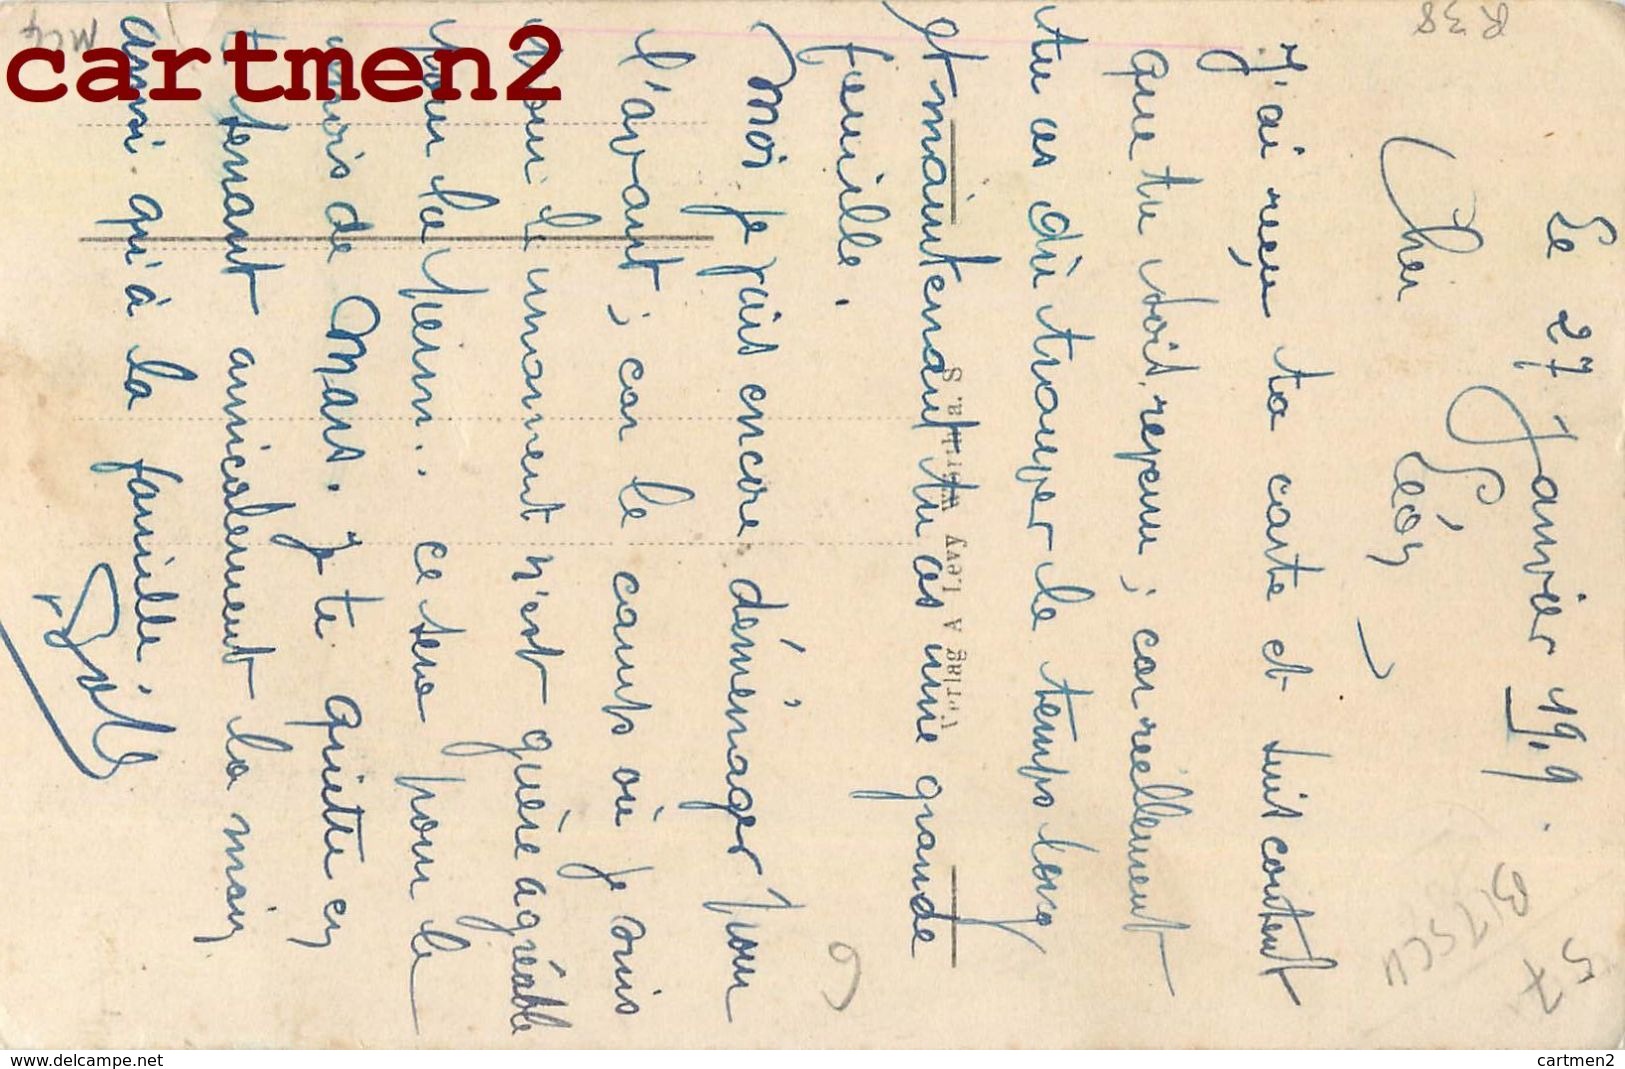 Le 27 Janvier 1919.
Cher Léon,
J'ai reçu ta carte et suit content
que tu soit, reçeu ; car réellement
tu as dû trouver le temps long
et maintenant tu as une grande
feuille.
Moi je vais encore déménager pour
l'avant ; car le camp où je suis
pour le moment n'est guère agréable
pour la ce sera pour le
mois de Mars. Je te quitte en
te serrant amicalement la main
ainsi qu'à la famille.
Verlag A Levy
57
BITSCH
6
R38
MC4
cartmen2
www.delcampe.net
cartmen2